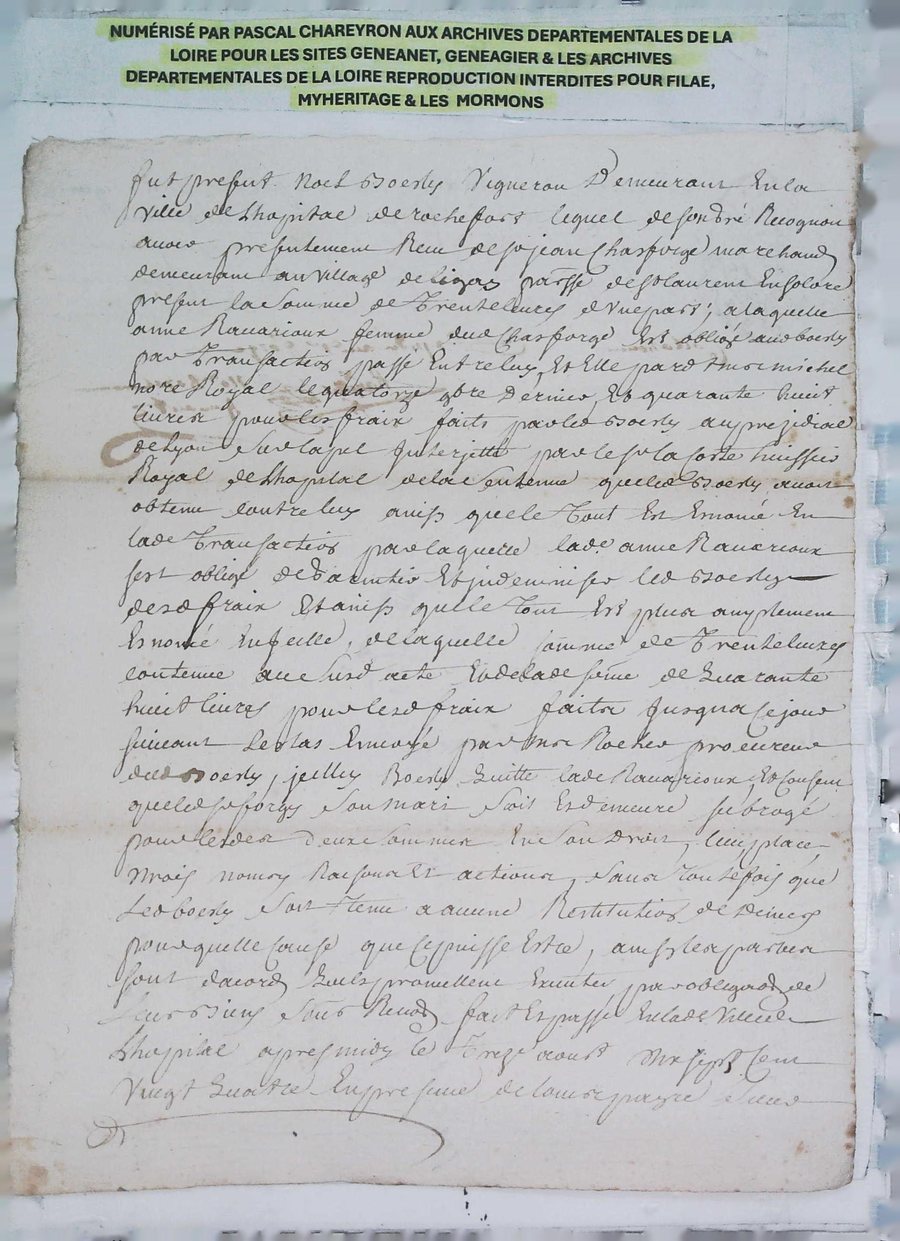 NUMÉRISÉ PAR PASCAL CHAREYRON AUX ARCHIVES DEPARTEMENTALES DE LA
LOIRE POUR LES SITES GENEANET, GENEAGIER & LES ARCHIVES
DEPARTEMENTALES DE LA LOIRE REPRODUCTION INTERDITES POUR FILAE,
MYHERITAGE & LES MORMONS
fut present Noel Boerly Vigneron Demeurant En la
ville de Lhopital de rochefort lequel de son gré Recognoit
avoir presentement Receu de sr jean Chasforge marchand
demeurant au village de parsse de st laurent En solore
present la somme de Trente livres d'une part, a laquelle
anne Ravarioux femme dud Chasforge Est obligé aud boerly
par Transaction passé Entre luy Et Elle pard michel
nore Royal le quatorze 9bre dernier, Et quarante huit
livres pour les fraix faits par led Boerly au presidial
de Lyon sur lapel Interjetté par le sr laforte huissier
Royal de Lhopital de la sentence que led Boerly avoit
obtenu contre luy ainsy que le Tout Est Ennoncé En
lade Transaction par laquelle lade anne Ravarioux
sest obligé de Et indemniser led Boerly
desd fraix Et ainsy que le Tout Est plus amplement
Ennoncé En jcelle, de laquelle somme de Trente livres
contenue au susd acte Et de lade somme de Quarante
huit livres pour lesd fraix faits Jusqua ce jour
suivant par me Rocher procureur
dud Boerly, jcelluy Boerly Quitte lade Ravarioux Et Consent
que led son mari soit Et demeure subrogé
pour lesdes deux sommes En son Droit, lieu, place,
noms Raisons Et actions, sans Toutefois que
led boerly soit Tenu a aucune Restitution de deniers
pour quelle cause que ce puisse Estre, ainsy les parties
sont dacord Quils promettent Executer par obligaon de
leurs biens sous Renon fait Et passé En lade ville de
Lhopital apres midy le Treize aoust mil sept Cent
Vingt Quatre En presence de louis payre